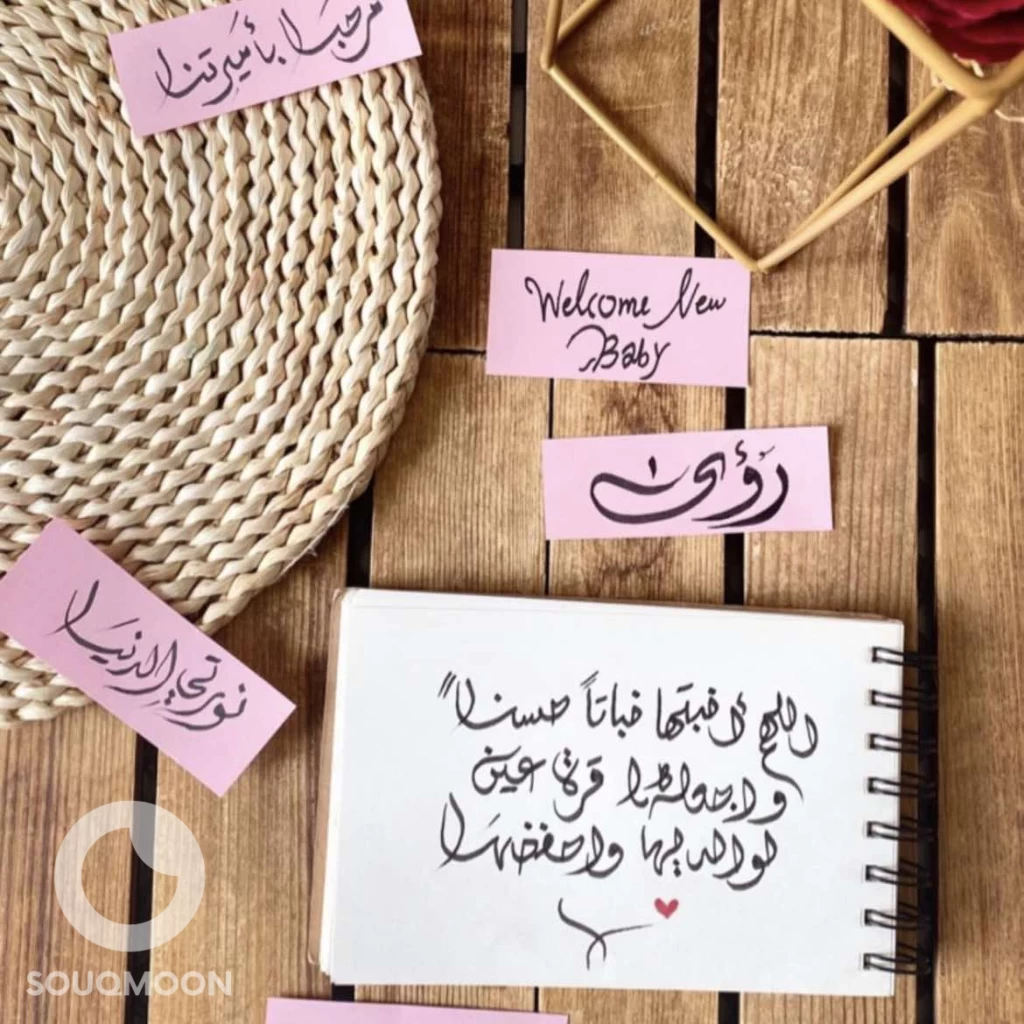 مرحبا بأميرتنا
Welcome New
Baby
رؤى
نورتي الدنيا
اللهم أنبتها نباتاً حسناً
واجعلها قرة عين
لوالديها واحفظها
SOUQMOON